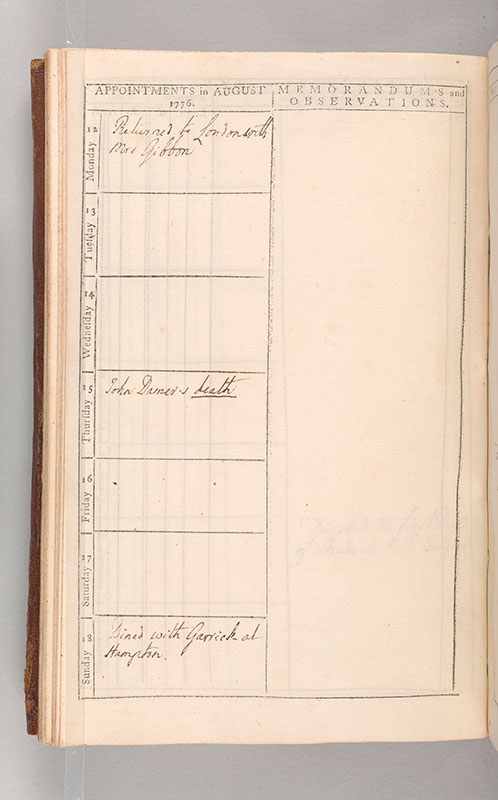 APPOINTMENTS in AUGUST
1776.
MEMORANDUMS and
OBSERVATIONS.
Monday 12
Returned to London with
Mrs Gibbon
Tueſday 13
Wedneſday 14
Thurſday 15
John Damer's death
Friday 16
Saturday 17
Sunday 18
Dined with Garrick at
Hampton.